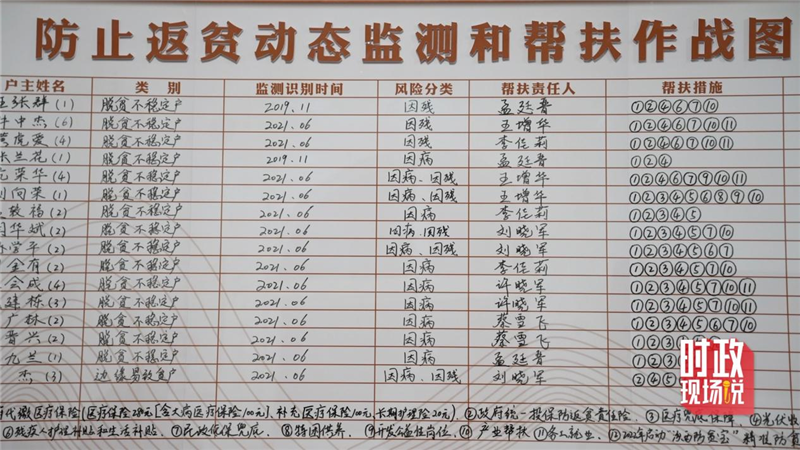 防止返贫动态监测和帮扶作战图
户主姓名 类 别 监测识别时间 风险分类 帮扶责任人 帮扶措施
张群(1) 脱贫不稳定户 2019.11 因残 孟延晋 ①②④⑥⑦⑩
中杰(6) 脱贫不稳定户 2021.06 因残 王增华 ①②④⑥⑦⑩⑪
虎爱(4) 脱贫不稳定户 2021.06 因残 李佳莉 ①②④⑥⑦⑩⑪
兰花(1) 脱贫不稳定户 2019.11 因病 孟延晋 ①②④
荣华(4) 脱贫不稳定户 2021.06 因病、因残 王增华 ①②④⑥⑦⑨⑩⑪
向荣(1) 脱贫不稳定户 2021.06 因病、因残 王增华 ①②③④⑤⑥⑧⑨⑩
致福(2) 脱贫不稳定户 2021.06 因病 李佳莉 ①②③④⑤
华斌(2) 脱贫不稳定户 2021.06 因病、因残 刘晓军 ①②③④⑤⑦⑩
学平(2) 脱贫不稳定户 2021.06 因病、因残 刘晓军 ①②③④⑥⑦⑩⑪
金有(2) 脱贫不稳定户 2021.06 因病 李佳莉 ①②③④⑤⑦⑩
会成(4) 脱贫不稳定户 2021.06 因病 许晓军 ①②③④⑤⑦⑩⑪
建栋(3) 脱贫不稳定户 2021.06 因病 许晓军 ①②③④⑤⑦⑪
广林(2) 脱贫不稳定户 2021.06 因病 蔡雪飞 ①②③④⑤⑥⑦⑩
晋兴(2) 脱贫不稳定户 2021.06 因病 蔡雪飞 ①②③
九兰(1) 脱贫不稳定户 2021.06 因病 孟延晋 ①②③
杰(3) 边缘易致贫户 2021.06 因病、因残 刘晓军 ②④⑤
时政
现场说
代缴医疗保险(医疗保险280元[含大病医疗保险100元],补充医疗保险100元,长期护理险20元) ②政府统一投保防返贫责任险, ③医疗兜底保障 ④光伏收
⑥残疾人护理补贴和生活补贴, ⑦民政低保兜底, ⑧特困供养, ⑨开发公益性岗位, ⑩产业帮扶 ⑪务工就业, ⑫2022年启动